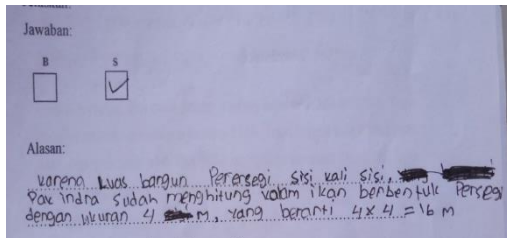 Jawaban:
B S
Alasan:
karena Luas bangun Perersegi sisi kali sisi,
Pak indra sudah menghitung kolam ikan berbentuk Persegi
dengan ukuran 4 M, yang berarti 4x4 = 16 m